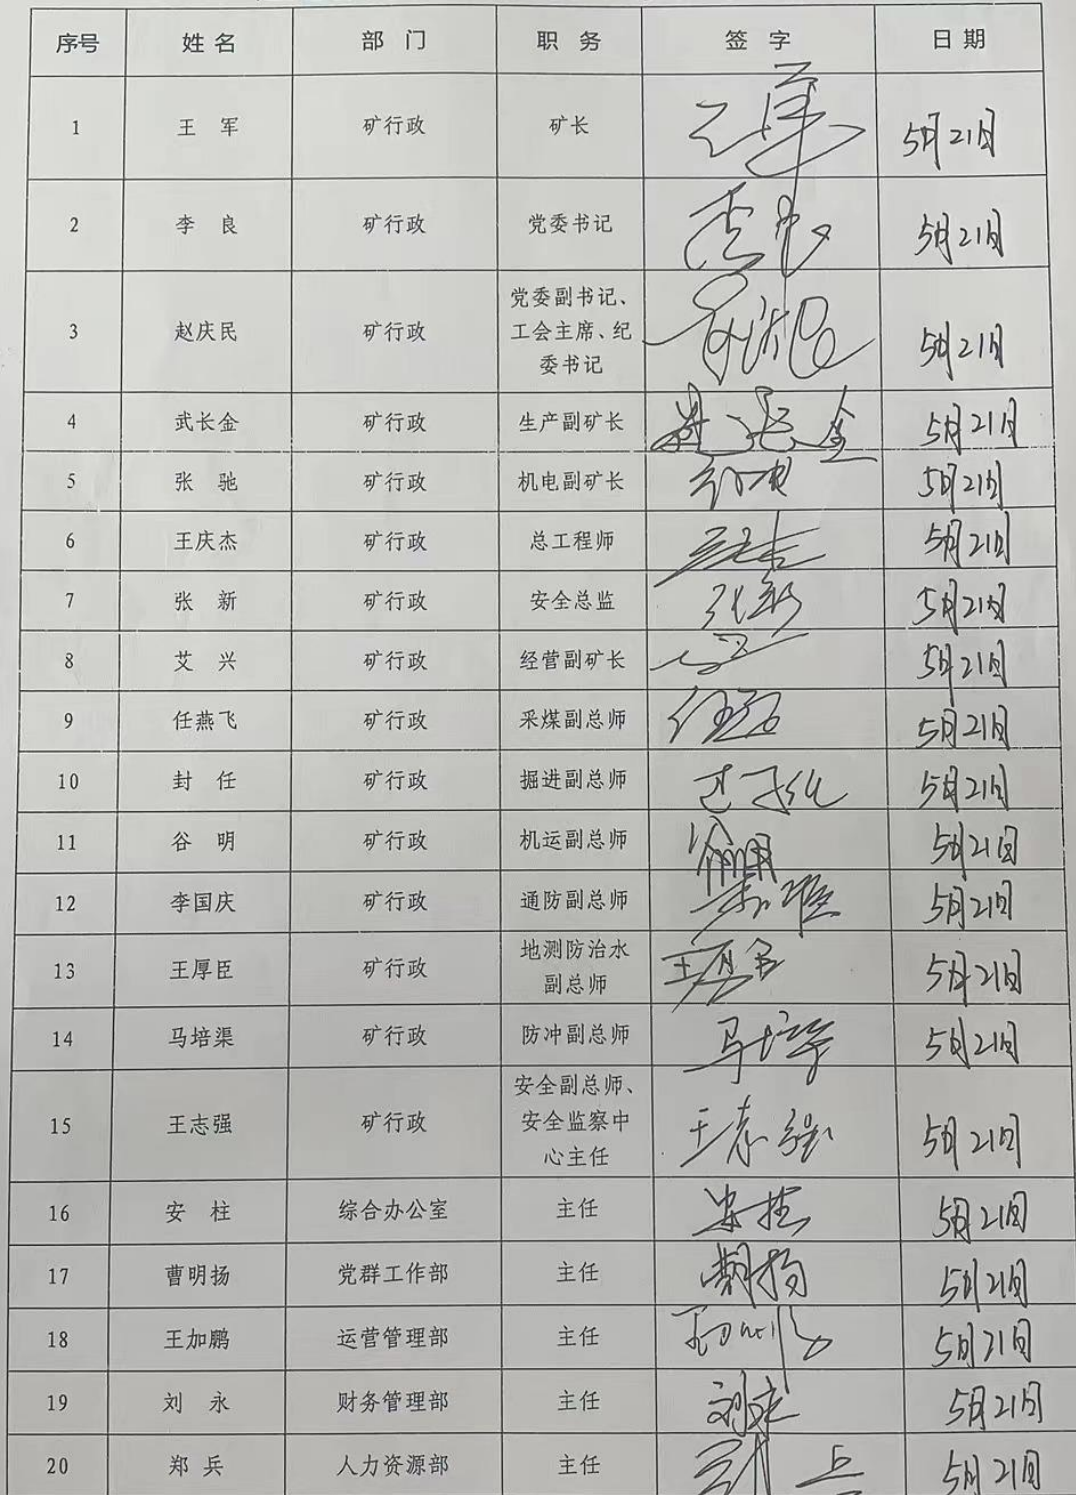 序号 姓名 部门 职务 签字 日期
1 王军 矿行政 矿长 王军 5月21日
2 李良 矿行政 党委书记 李良 5月21日
党委副书记、
3 赵庆民 矿行政 工会主席、纪 5月21日
委书记
4 武长金 矿行政 生产副矿长 武长金 5月21日
5 张驰 矿行政 机电副矿长 5月21日
6 王庆杰 矿行政 总工程师 5月21日
7 张新 矿行政 安全总监 张新 5月21日
8 艾兴 矿行政 经营副矿长 5月21日
9 任燕飞 矿行政 采煤副总师 5月21日
10 封任 矿行政 掘进副总师 5月21日
11 谷明 矿行政 机运副总师 5月21日
12 李国庆 矿行政 通防副总师 5月21日
地测防治水
13 王厚臣 矿行政 5月21日
副总师
14 马培渠 矿行政 防冲副总师 马培渠 5月21日
安全副总师、
15 王志强 矿行政 安全监察中 王志强 5月21日
心主任
16 安柱 综合办公室 主任 安柱 5月21日
17 曹明扬 党群工作部 主任 曹明扬 5月21日
18 王加鹏 运营管理部 主任 5月21日
19 刘永 财务管理部 主任 刘永 5月21日
20 郑兵 人力资源部 主任 5月21日